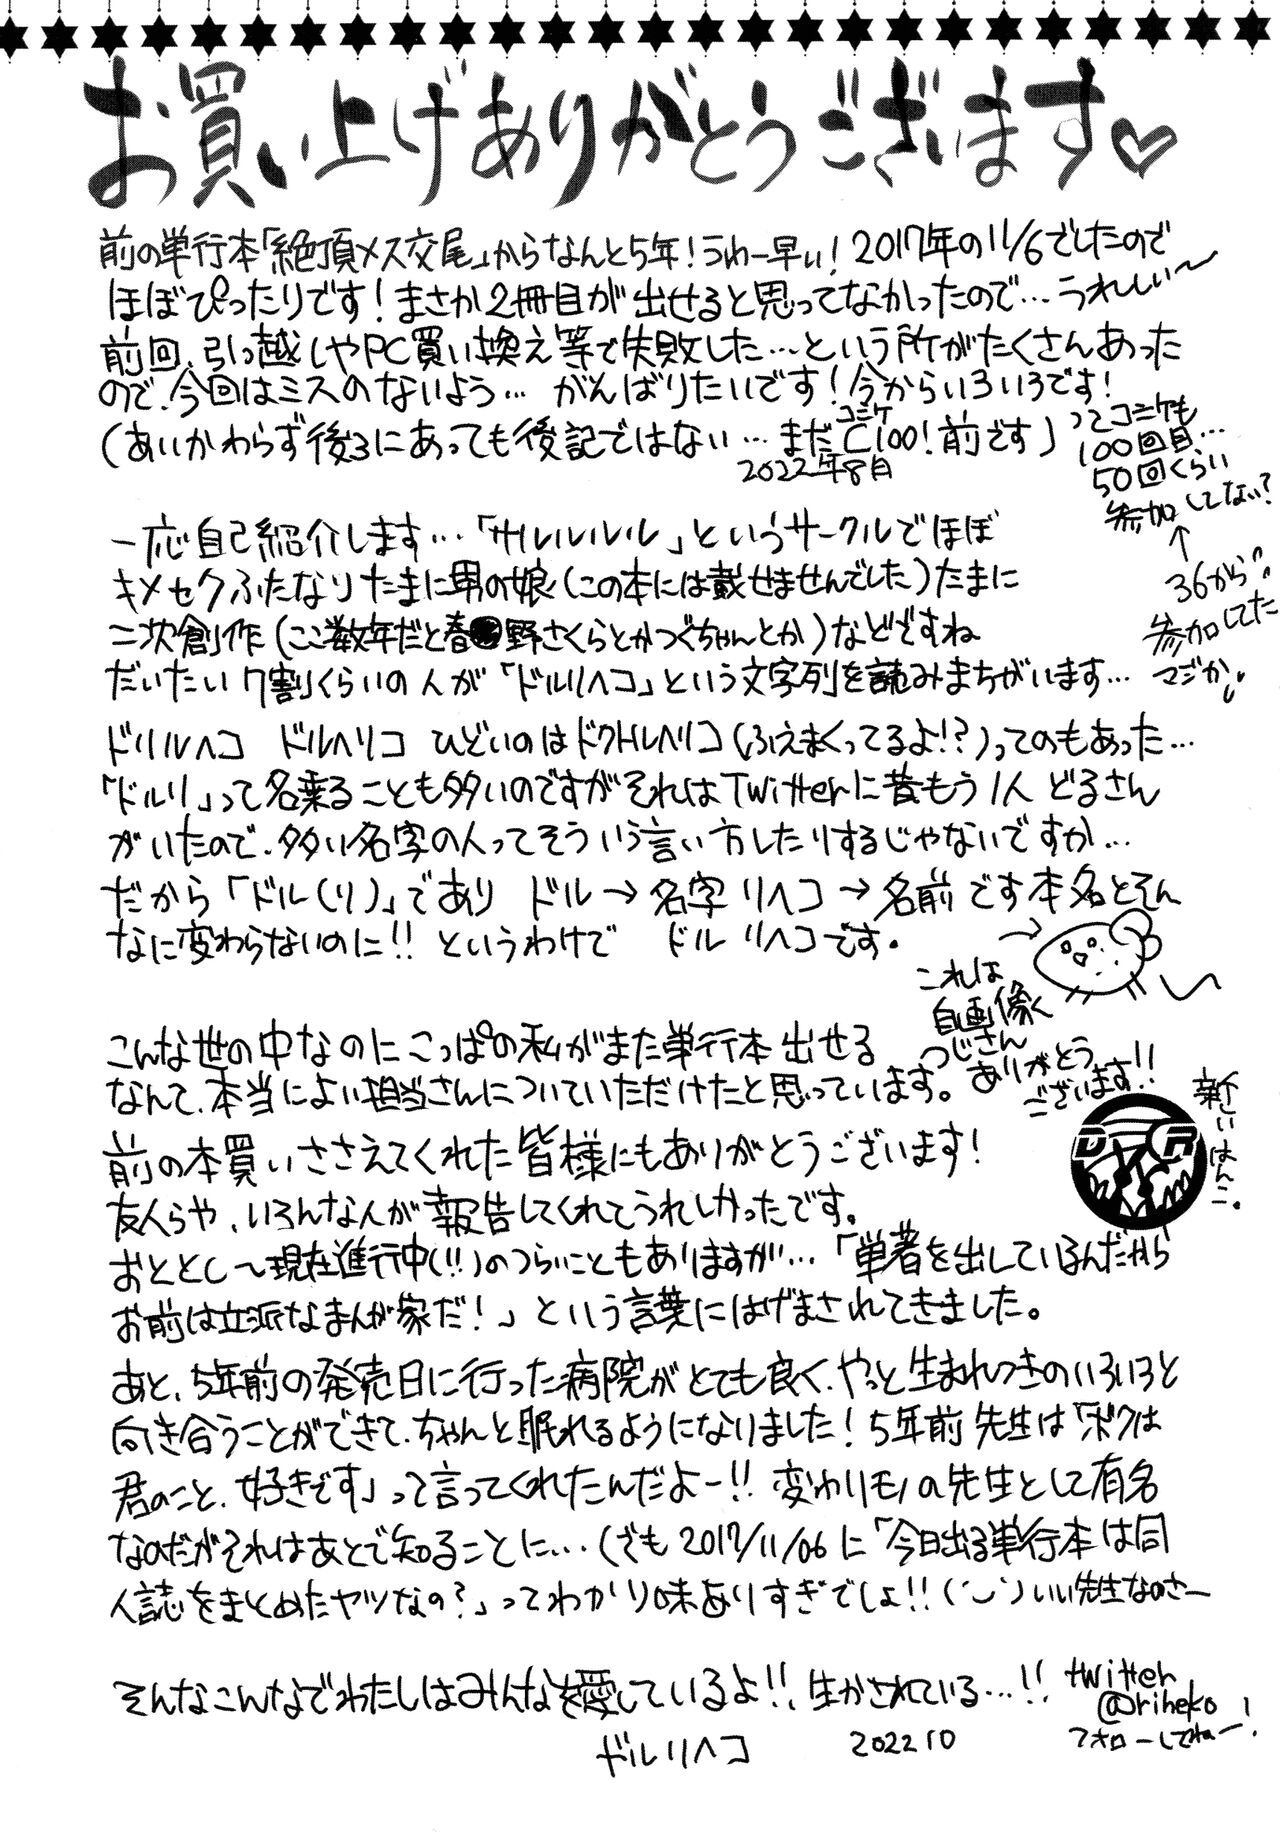 お買い上げありがとうございます♡
前の単行本「絶頂メス交尾」からなんと5年！うわー早い！2017年の11/6でしたので
ほぼぴったりです！まさか2冊目が出せると思ってなかったので…うれしい～
前回、引っ越しやPC買い換え等で失敗した…という所がたくさんあった
ので、今回はミスのないよう…がんばりたいです！今からいろいろです！
コミケ
(あいかわらず後ろにあっても後記ではない…まだC100！前です)
2022年8月
ってコミケも
100回目…
50回くらい
参加してない？
↑
36から
参加してた
マジか
一応自己紹介します…「サルルルルル」というサークルでほぼ
キメセクふたなりたまに男の娘(この本には載せませんでした)たまに
二次創作(ここ数年だと春野さくらとかつぐちゃんとか)などですね
だいたい7割くらいの人が「ドルリヘコ」という文字列を読みまちがいます…
ドリルヘコ ドルヘリコ ひどいのはドクトルヘリコ(ふえまくってるよ!?)ってのもあった…
「ドルリ」って名乗ることも多いのですがそれはTwitterに昔もう1人どるさん
がいたので、多い名字の人ってそういう言い方したりするじゃないですか…
だから「ドル(リ)」であり ドル→名字 リヘコ→名前です本名とそん
なに変わらないのに!!というわけで ドルリヘコです。
→
これは
自画像く
つじさん
ありがとう
ございます!!
こんな世の中なのにこっぱの私がまた単行本出せる
なんて、本当によい担当さんについていただけたと思っています。
新しいはんこ。
D R
前の本買いささえてくれた皆様にもありがとうございます！
友人らや、いろんな人が報告してくれてうれしかったです。
おととし～現在進行中(!!)のつらいこともありますが…「単著を出しているんだから
お前は立派なまんが家だ！」という言葉にはげまされてきました。
あと、5年前の発売日に行った病院がとても良く、やっと生まれつきのいろいろと
向き合うことができて、ちゃんと眠れるようになりました！5年前先生は「ボクは
君のこと、好きです」って言ってくれたんだよー!!変わりモノの先生として有名
なのだがそれはあとで知ることに…(でも2017/11/06に「今日出る単行本は同
人誌をまとめたヤツなの？」ってわかり味ありすぎでしょ!!(˙◡˙)いい先生なのさー
そんなこんなでわたしはみんなを愛しているよ!!生かされている…!!
ドルリヘコ 2022 10
twitter
@riheko
フォローしてねー！